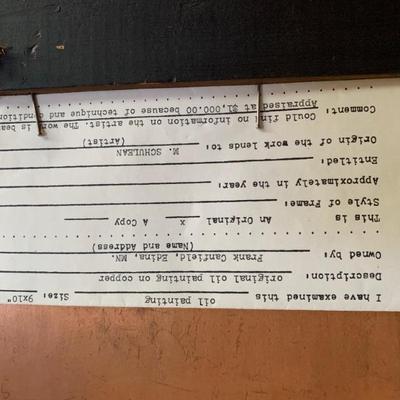 I have examined this oil painting Size: 9x10"
Description: original oil painting on copper
Owned by: Frank Canfield, Edina, MN.
(Name and Address)
This is An Original x A Copy
Style of Frame:
Approximately in the year:
Entitled:
Origin of the work lends to: M. SCHULEAN
(Artist)
Could find no information on the artist. The work is beau
Comment: Appraised at $1,000.00 because of technique and condition